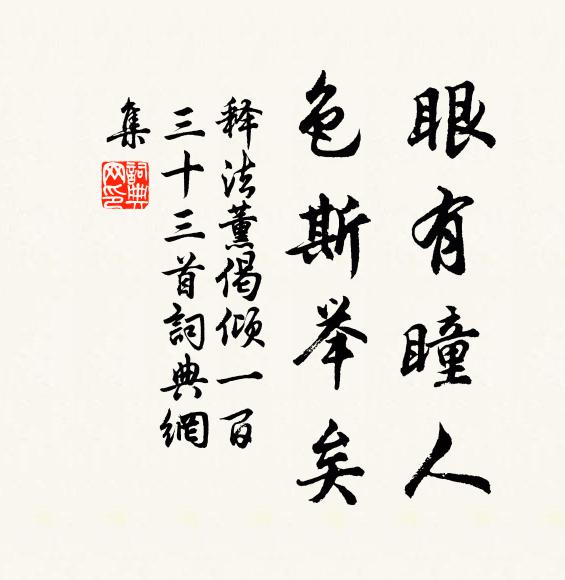 眼有瞳人
色斯举矣
释法薰偈倾一百
三十三首詞典網
集
詞典
网印